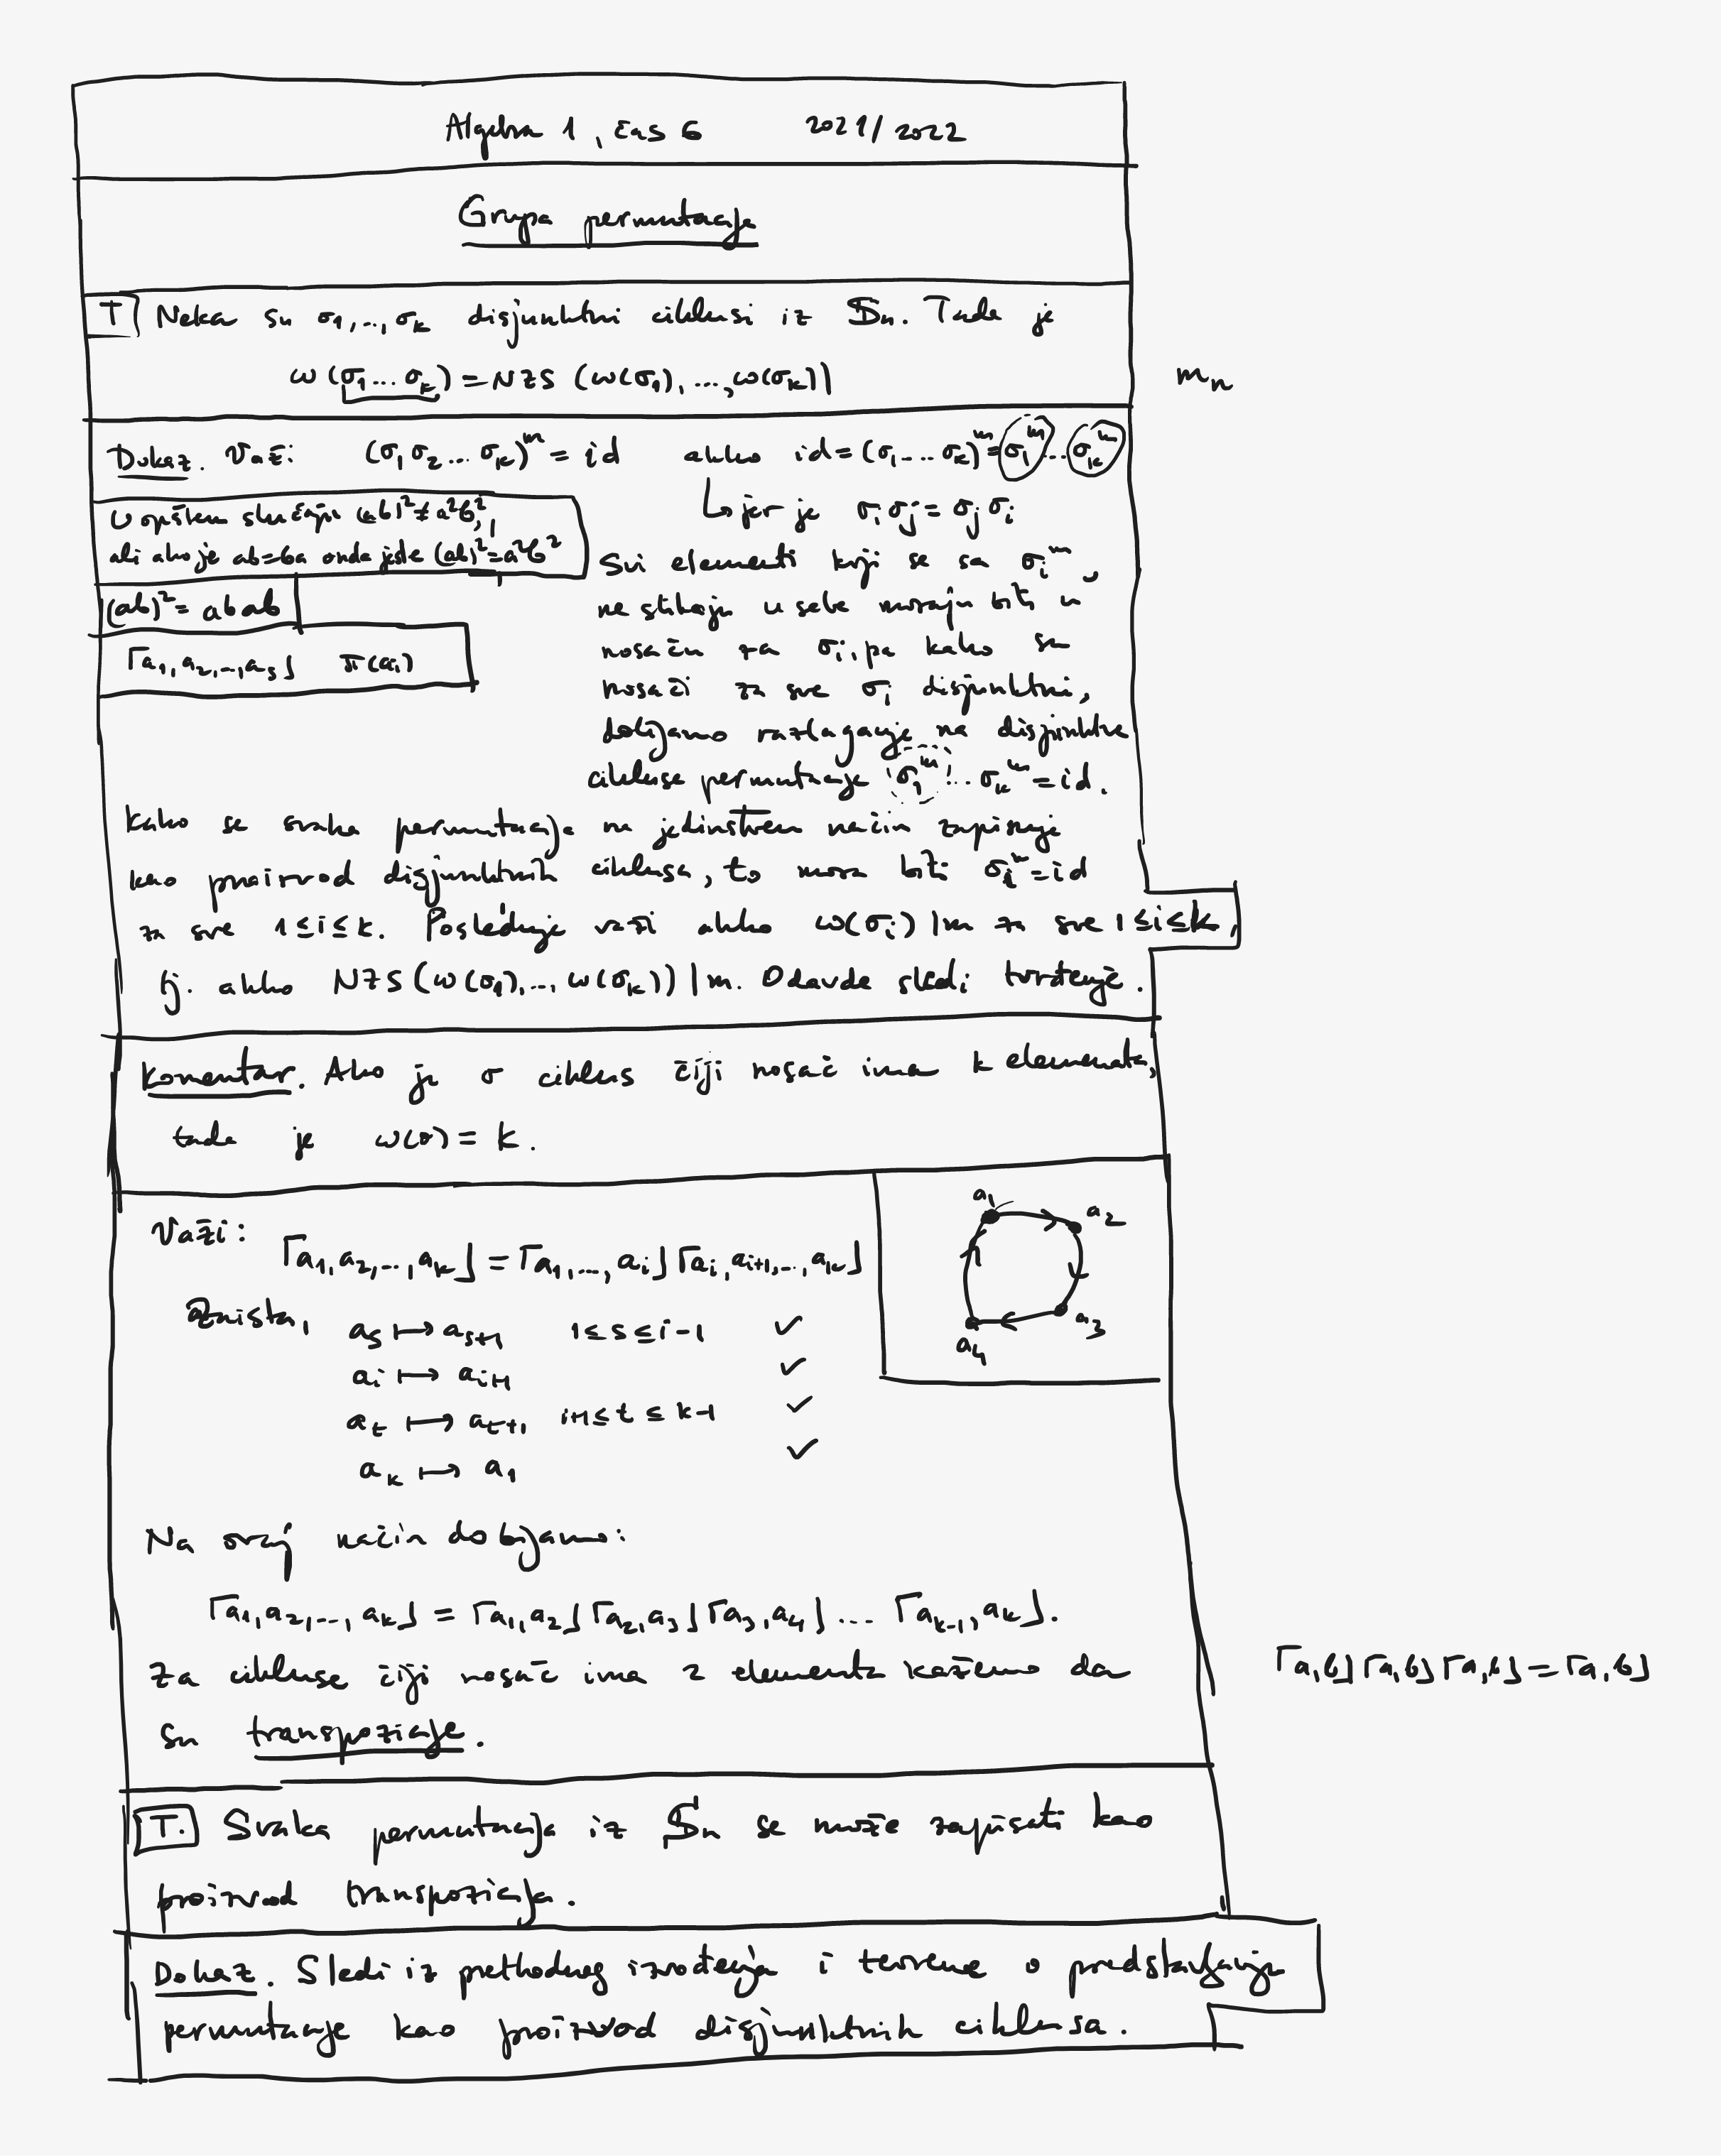 Algebra 1, čas 6 2021/2022
Grupa permutacija
T Neka su σ₁,...,σₖ disjunktni ciklusi iz 𝕊ₙ. Tada je
ω(σ₁...σₖ) = NZS (ω(σ₁),...,ω(σₖ))
mₙ
Dokaz. Važi: (σ₁σ₂...σₖ)ᵐ = id akko id = (σ₁...σₖ)ᵐ = σ₁ᵐ...σₖᵐ
↳ jer je σᵢσⱼ = σⱼσᵢ
U opštem slučaju (ab)² ≠ a²b²,
ali ako je ab=ba onda jeste (ab)²=a²b²
(ab)² = abab
⌈a₁,a₂,...,aₛ⌋ π(aᵢ)
Svi elementi koji se sa σᵢᵐ
ne slikaju u sebe moraju biti u
nosaču za σᵢ, pa kako su
nosači za sve σᵢ disjunktni,
dobijamo razlaganje na disjunktne
cikluse permutacije σ₁ᵐ...σₖᵐ = id.
Kako se svaka permutacija na jedinstven način zapisuje
kao proizvod disjunktnih ciklusa, to mora biti σᵢᵐ = id
za sve 1≤i≤k. Poslednje važi akko ω(σᵢ)|m za sve 1≤i≤k,
tj. akko NZS(ω(σ₁),...,ω(σₖ))|m. Odavde sledi tvrđenje.
Komentar. Ako je σ ciklus čiji nosač ima k elemenata,
tada je ω(σ) = k.
Važi:
⌈a₁,a₂,...,aₖ⌋ = ⌈a₁,...,aᵢ⌋⌈aᵢ,aᵢ₊₁,...,aₖ⌋
a₁ a₂
a₃
a₄
Zaista, aₛ ↦ aₛ₊₁ 1≤s≤i-1 ✓
aᵢ ↦ aᵢ₊₁ ✓
aₜ ↦ aₜ₊₁ i+1≤t≤k-1 ✓
aₖ ↦ a₁ ✓
Na ovaj način dobijamo:
⌈a₁,a₂,...,aₖ⌋ = ⌈a₁,a₂⌋⌈a₂,a₃⌋⌈a₃,a₄⌋...⌈aₖ₋₁,aₖ⌋.
Za cikluse čiji nosač ima 2 elementa kažemo da
⌈a,b⌋⌈a,b⌋⌈a,b⌋=⌈a,b⌋
su transpozicije.
T. Svaka permutacija iz 𝕊ₙ se može zapisati kao
proizvod transpozicija.
Dokaz. Sledi iz prethodnog izvođenja i teoreme o predstavljanju
permutacije kao proizvod disjunktnih ciklusa.